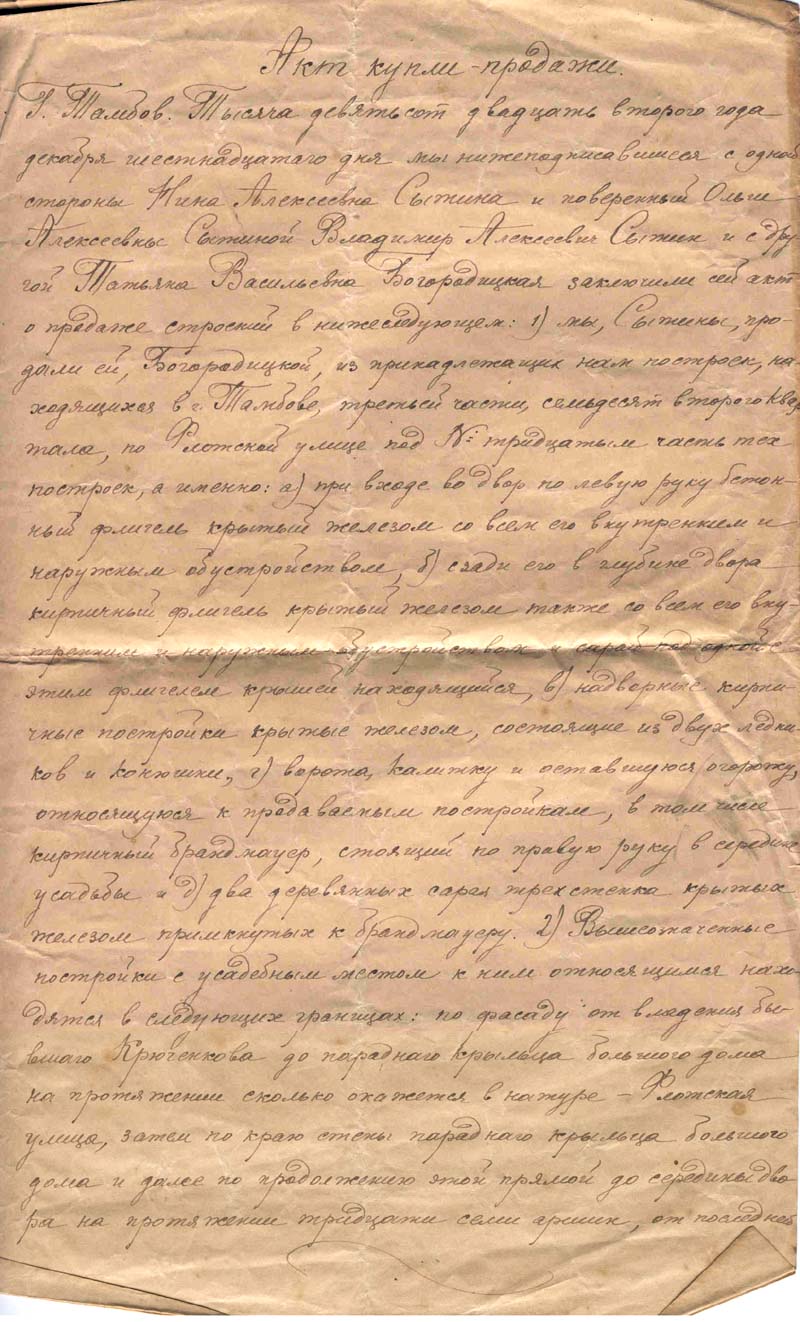 Акт купли-продажи.
Г. Тамбов. Тысяча девятьсот двадцать второго года
декабря шестнадцатаго дня мы нижеподписавшиеся с одной
стороны Нина Алексеевна Сытина и поверенный Ольги
Алексеевны Сытиной Владимир Алексеевич Сытин и с дру-
гой Татьяна Васильевна Богородицкая заключили сей акт
о продаже строений в нижеследующем: 1) мы, Сытины, про-
дали ей, Богородицкой, из принадлежащих нам построек, на-
ходящихся в г. Тамбове, третьей части, семьдесят второго квар
тала, по Флотской улице под № тридцатым часть тех
построек, а именно: а) при входе во двор по левую руку бетон-
ный флигель крытый железом со всем его внутренним и
наружным обустройством, б) сзади его в глубине двора
кирпичный флигель крытый железом также со всем его вну-
тренним и наружным обустройством и сарай под одной с
этим флигелем крышей находящийся, в) надворные кирпи-
чные постройки крытые железом, состоящие из двух ледни-
ков и конюшни, г) ворота, калитку и оставшуюся огорожу,
относящуюся к продаваемым постройкам, в том числе
кирпичный брандмауер, стоящий по правую руку в середине
усадьбы и д) два деревянных сарая трехстенка крытых
железом примкнутых к брандмауеру. 2) Вышеозначенные
постройки с усадебным местом к ним относящимся нахо-
дятся в следующих границах: по фасаду от владения бы-
вшаго Крюченкова до параднаго крыльца большого дома
на протяжении сколько окажется в натуре – Флотская
улица, затем по краю стены параднаго крыльца большого
дома и далее по продолжению этой прямой до середины дво-
ра на протяжении тридцати семи аршин, от последней